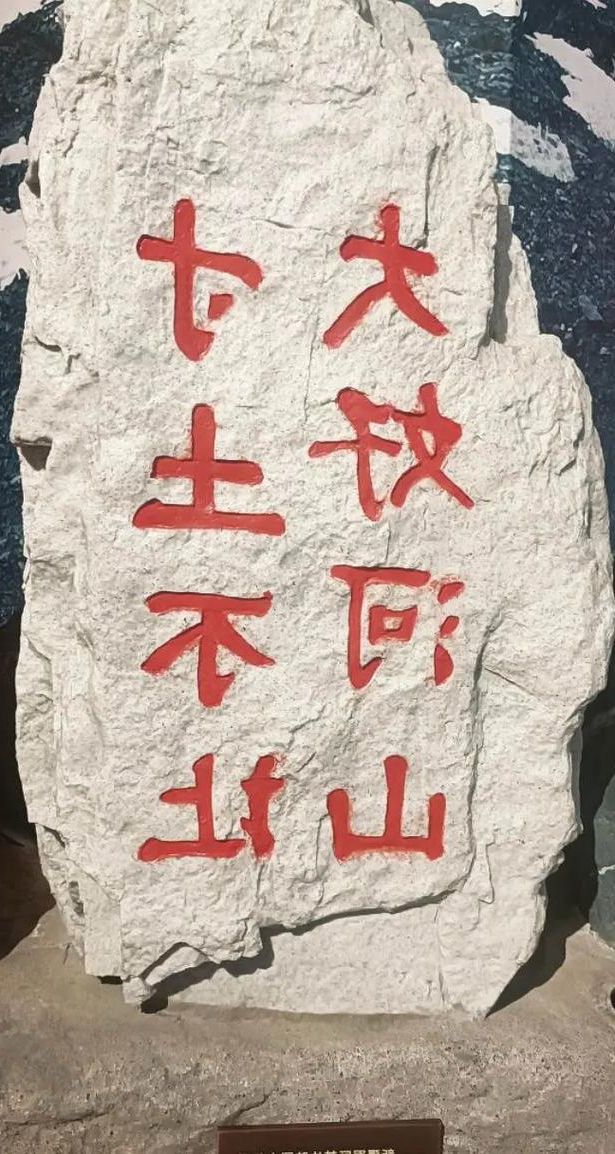 大好河山
寸土不让